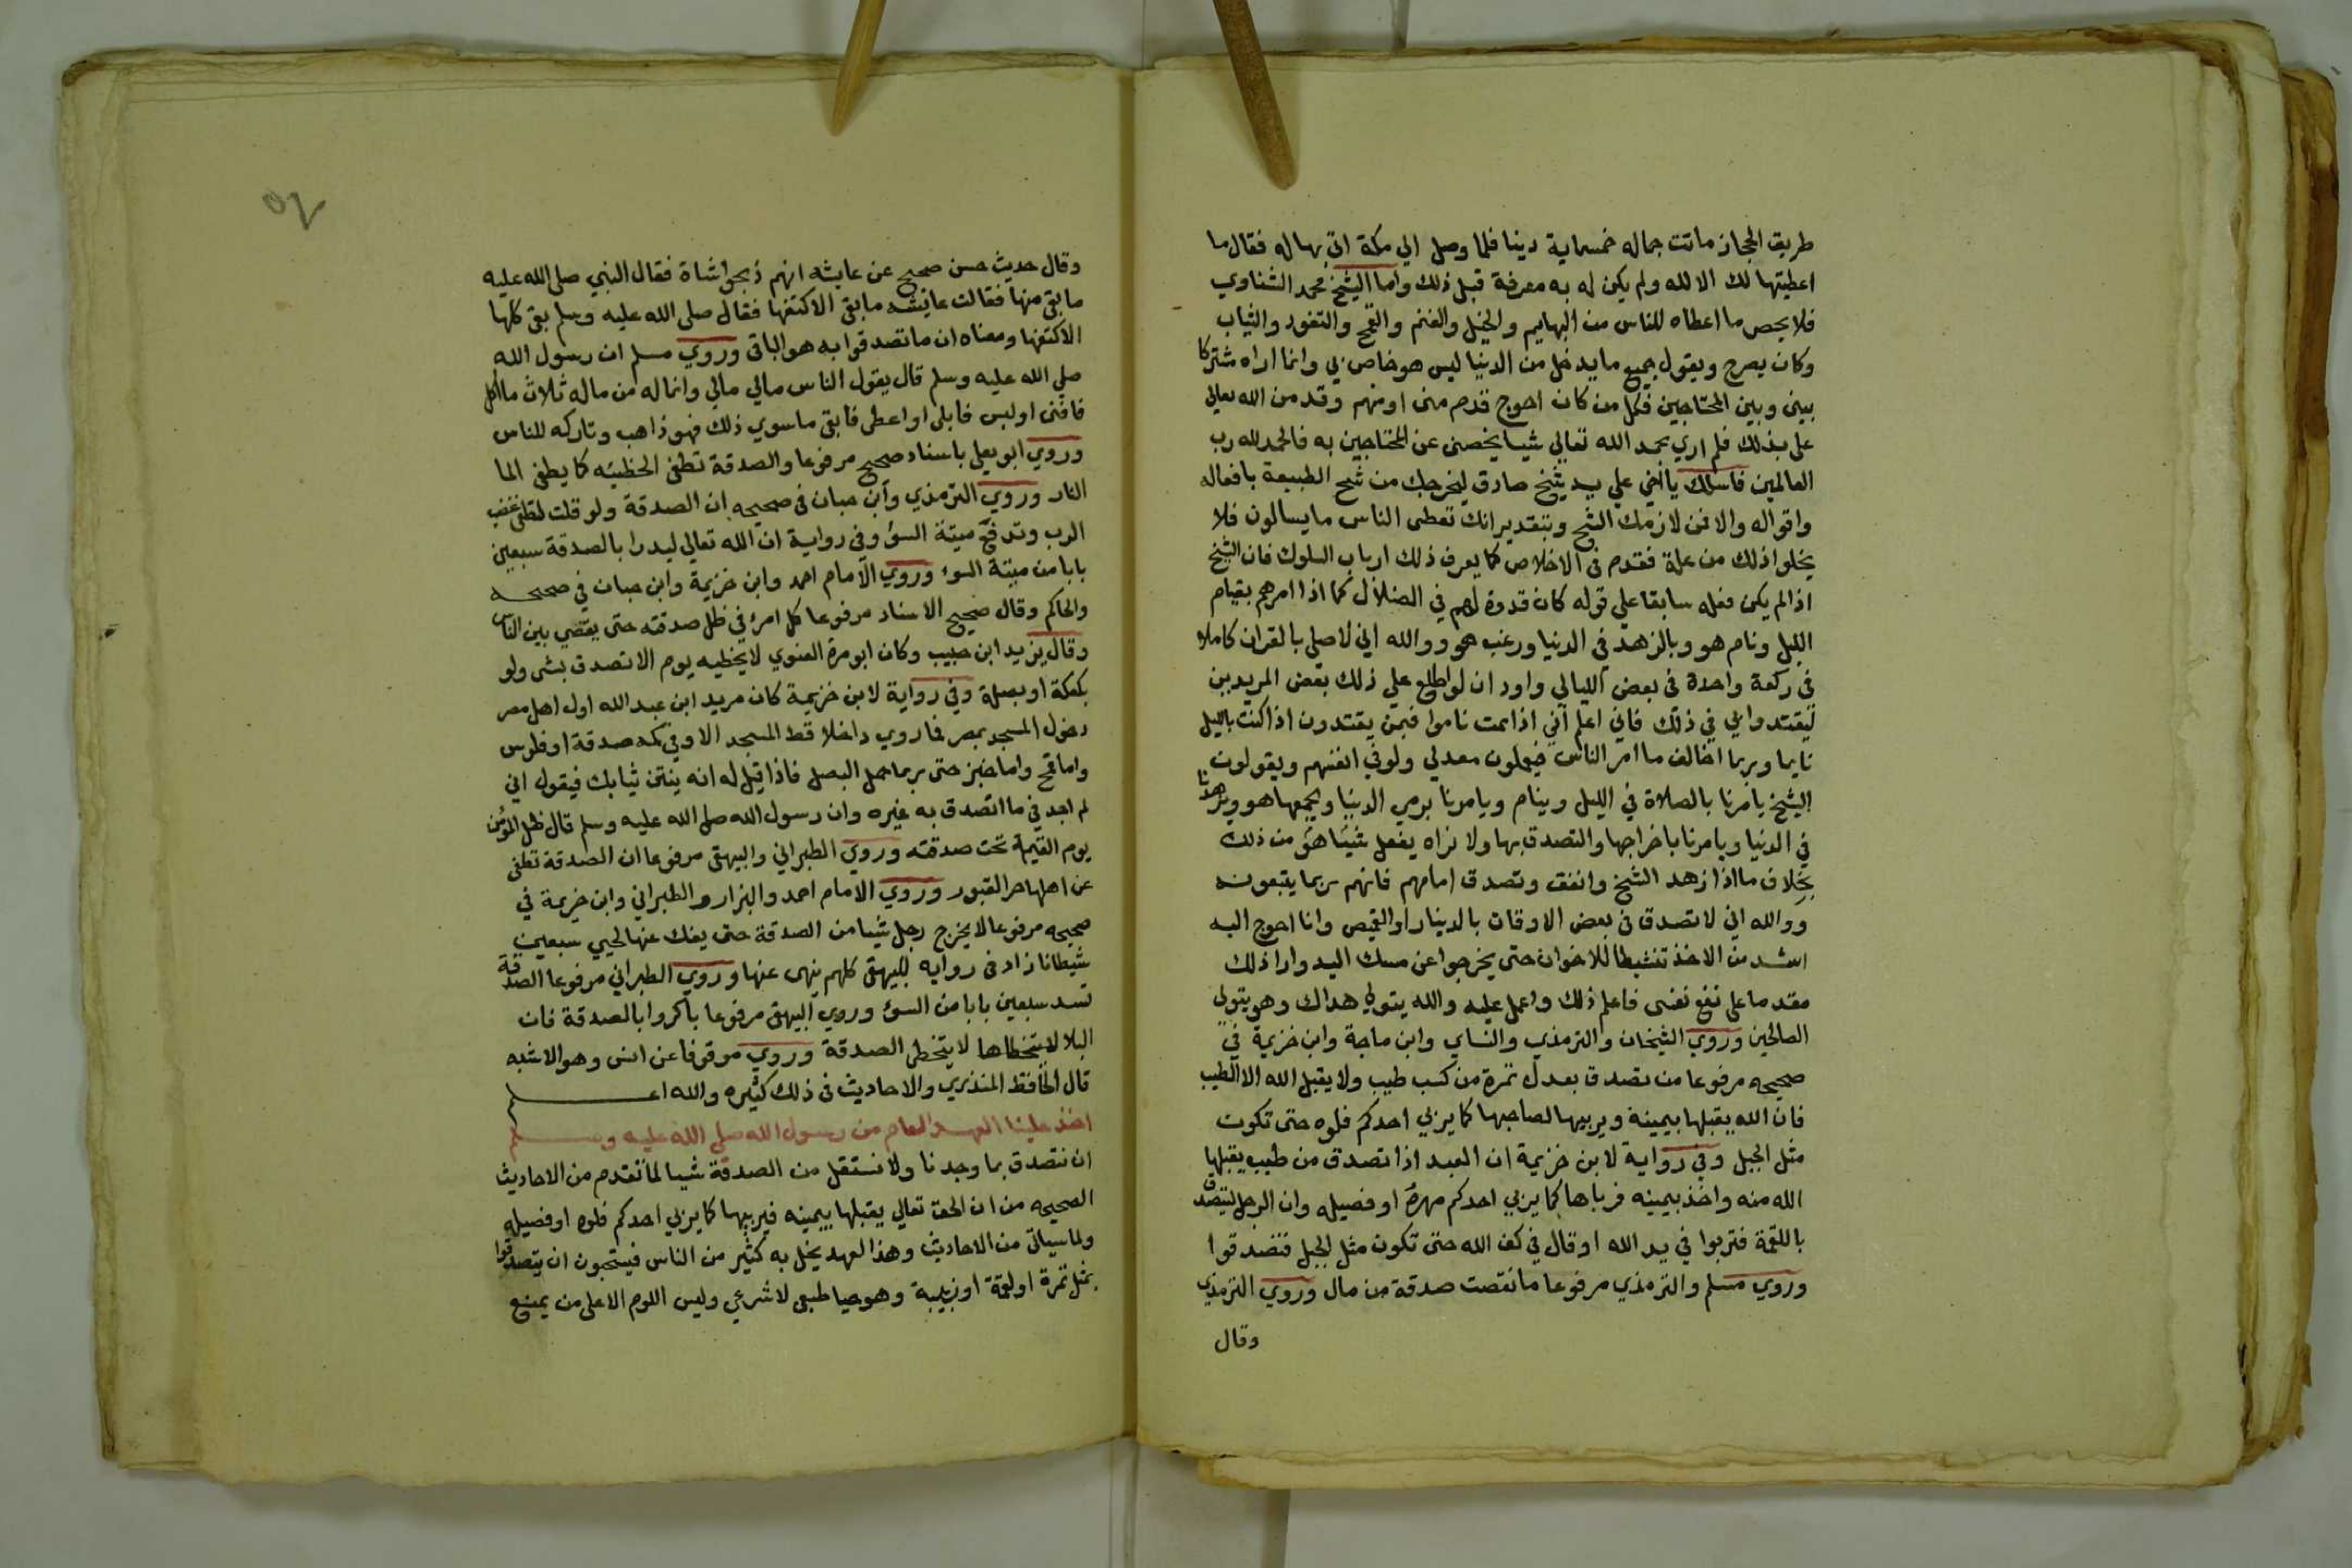 طريق الحجاز ماتت جماله خمسماية دينا فلما وصل الي مكة اتي بها له فقال ما
اعطيتها لك الا لله ولم يكن له به معرفة قبل ذلك واما الشيخ محمد الشناوي
فلا يحص ما اعطاه للناس من البهايم والخيل والغنم والقمح والنقود والثياب
وكان يصرح ويقول جميع ما يدخل من الدنيا ليس هو خاص بي وانما اراه مشتركا
بيني وبين المحتاجين فكل من كان احوج قدم مني او منهم وقد من الله تعالي
علي بذلك فلم اري بحمد الله تعالي شيا يخصني عن المحتاجين به فالحمد لله رب
العالمين فاسلك يا اخي علي يد شيخ صادق ليخرجك من شح الطبيعة بافعاله
واقواله والا فمن لازمك الشح وبتقدير انك تعطي الناس ما يسالون فلا
يخلوا ذلك من علة فقدم في الاخلاص كما يعرف ذلك ارباب السلوك فان الشيخ
اذا لم يكن فعله سابقا علي قوله كان قدوة لهم في الضلال كما اذا امرهم بقيام
الليل ونام هو وبالزهد في الدنيا ورغب هو ووالله اني لاصلي بالقران كاملا
في ركعة واحدة في بعض الليالي واود ان لو اطلع علي ذلك بعض المريدين
ليقتدوا بي في ذلك فاني اعلم انني اذا نمت ناموا فبمن يقتدون اذا كنت بالليل
نايما وربما اخالف ما امر الناس فيحملون معدلي ولو في انفسهم ويقولون
الشيخ يامرنا بالصلاة في الليل وينام ويامرنا برمي الدنيا ويجمعها هو ويزهدنا
في الدنيا ويامرنا باخراجها والتصدق بها ولا نراه يفعل شيئا هو من ذلك
بخلاف ما اذا زهد الشيخ وانفق وتصدق امامهم فانهم ربما يتبعونه
ووالله اني لاتصدق في بعض الاوقات بالدينار او القميص وانا احوج اليه
اشد من الاخذ تنشيطا للاخوان حتى يخرجوا عن مسك اليد وارا ذلك
مقدما علي نفع نفسي فاعلم ذلك واعمل عليه والله يتولي هداك وهو يتولي
الصالحين وروي الشيخان والترمذي والنساي وابن ماجة وابن خزيمة في
صحيحه مرفوعا من تصدق بعدل تمرة من كسب طيب ولا يقبل الله الا الطيب
فان الله يقبلها بيمينه ويربيها لصاحبها كما يربي احدكم فلوه حتى تكون
مثل الجبل وفي رواية لابن خزيمة ان العبد اذا تصدق من طيب يقبلها
الله منه واخذ بيمينه فرباها كما يربي احدكم مهره او فصيله وان الرجل ليتصدق
باللقمة فتربوا في يد الله او قال في كف الله حتى تكون مثل الجبل فتصدقوا
وروي مسلم والترمذي مرفوعا ما نقصت صدقة من مال وروي الترمذي
وقال
٥٧
وقال حديث حسن صحيح عن عايشه انهم ذبحوا شاة فقال النبي صلى الله عليه
ما بقي منها فقالت عايشه ما بقي الا كتفها فقال صلى الله عليه وسلم بقي كلها
الا كتفها ومعناه ان ما تصدقوا به هو الباقي وروي مسلم ان رسول الله
صلي الله عليه وسلم قال يقول الناس مالي مالي وانما له من ماله ثلاث ما اكل
فافنى او لبس فابلى او اعطى فابقى ما سوي ذلك فهو ذاهب وتاركه للناس
وروي ابو يعلي باسناد صحيح مرفوعا والصدقة تطفئ الخطيئه كما يطفئ الما
النار وروي الترمذي وابن حبان في صحيحه ان الصدقة ولو قلت لتطفئ غضب
الرب وتدفع ميتة السوء وفي رواية ان الله تعالي ليدرا بالصدقة سبعين
بابا من ميتة السوء وروي الامام احمد وابن خزيمة وابن حبان في صحيحه
والحاكم وقال صحيح الاسناد مرفوعا كل امرئ في ظل صدقته حتى يقضي بين الناس
وقال يزيد ابن حبيب وكان ابو مرة الغنوي لا يخطيه يوم الا تصدق بشي ولو
بكعكة او بصلة وفي رواية لابن خزيمة كان مريد ابن عبد الله اول اهل مصر
دخول المسجد بمصر فما روي داخلا قط المسجد الا وفي كمه صدقة او فلوس
واما قمح واما خبز حتى ربما حمل البصل فاذا قيل له انه ينتن ثيابك فيقول اني
لم اجد في ما اتصدق به غيره وان رسول الله صلى الله عليه وسلم قال ظل المؤمن
يوم القيمة تحت صدقته وروي الطبراني والبيهقي مرفوعا ان الصدقة تطفئ
عن اهلها حر القبور وروي الامام احمد والبزار والطبراني وابن خزيمة في
صحيحه مرفوعا لا يخرج رجل شيا من الصدقة حتى يفك عنها لحيي سبعين
شيطانا زاد في روايه للبيهقي كلهم ينهى عنها وروي الطبراني مرفوعا الصدقة
تسد سبعين بابا من السوء وروي البيهقي مرفوعا باكروا بالصدقة فان
البلا لا يتخطاها لا يتخطى الصدقة وروي موقوفا عن انس وهو الاشبه
قال الحافظ المنذري والاحاديث في ذلك كثيره والله اعلم
اخذ علينا العهد العام من رسول الله صلى الله عليه وسلم
ان نتصدق بما وجدنا ولا نستقل من الصدقة شيا لما تقدم من الاحاديث
الصحيحه من ان الحق تعالي يقبلها بيمينه فيربيها كما يربي احدكم فلوه او فصيله
ولما سياتي من الاحاديث وهذا العهد يخل به كثير من الناس فيستحيون ان يتصدقوا
بمثل تمرة او لقمة او زبيبة وهو حيا طبعي لا شرعي وليس اللوم الا على من يمنع